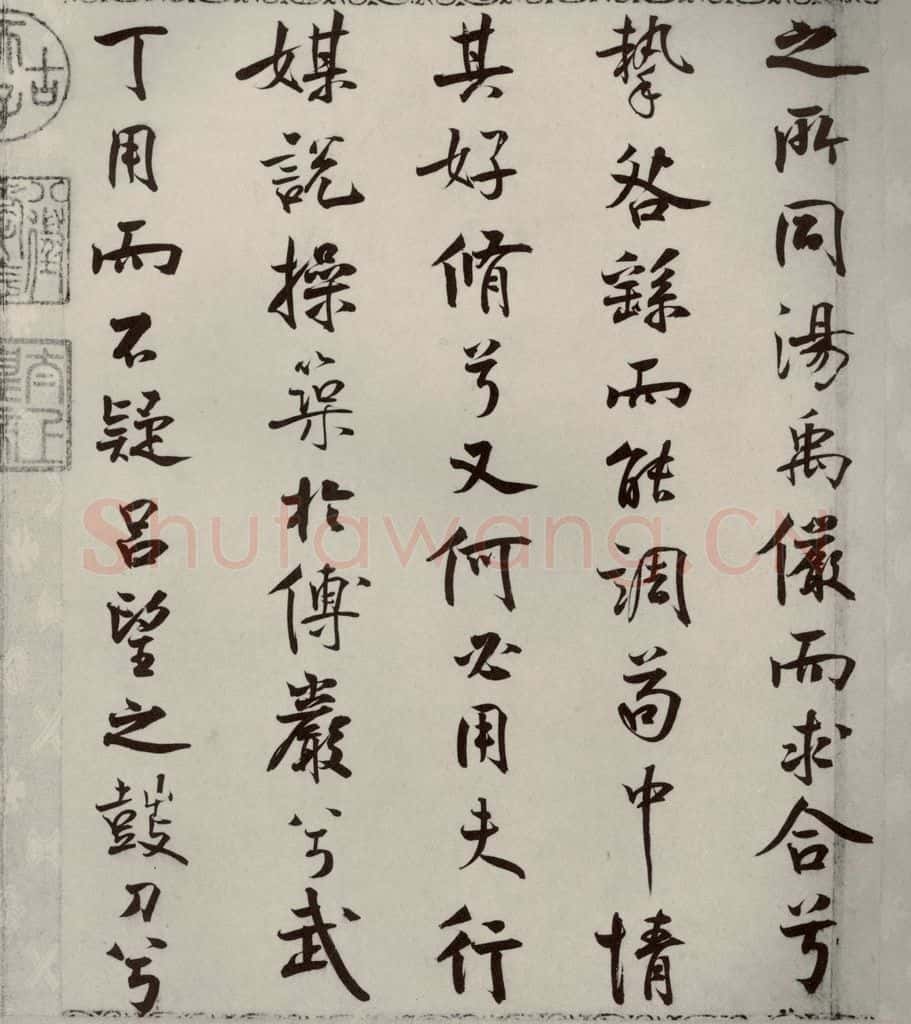 之所同湯禹儼而求合兮
摯咎繇而能調苟中情
其好脩兮又何必用夫行
媒說操築於傅巖兮武
丁用而不疑呂望之鼓刀兮
Shufawang.CN